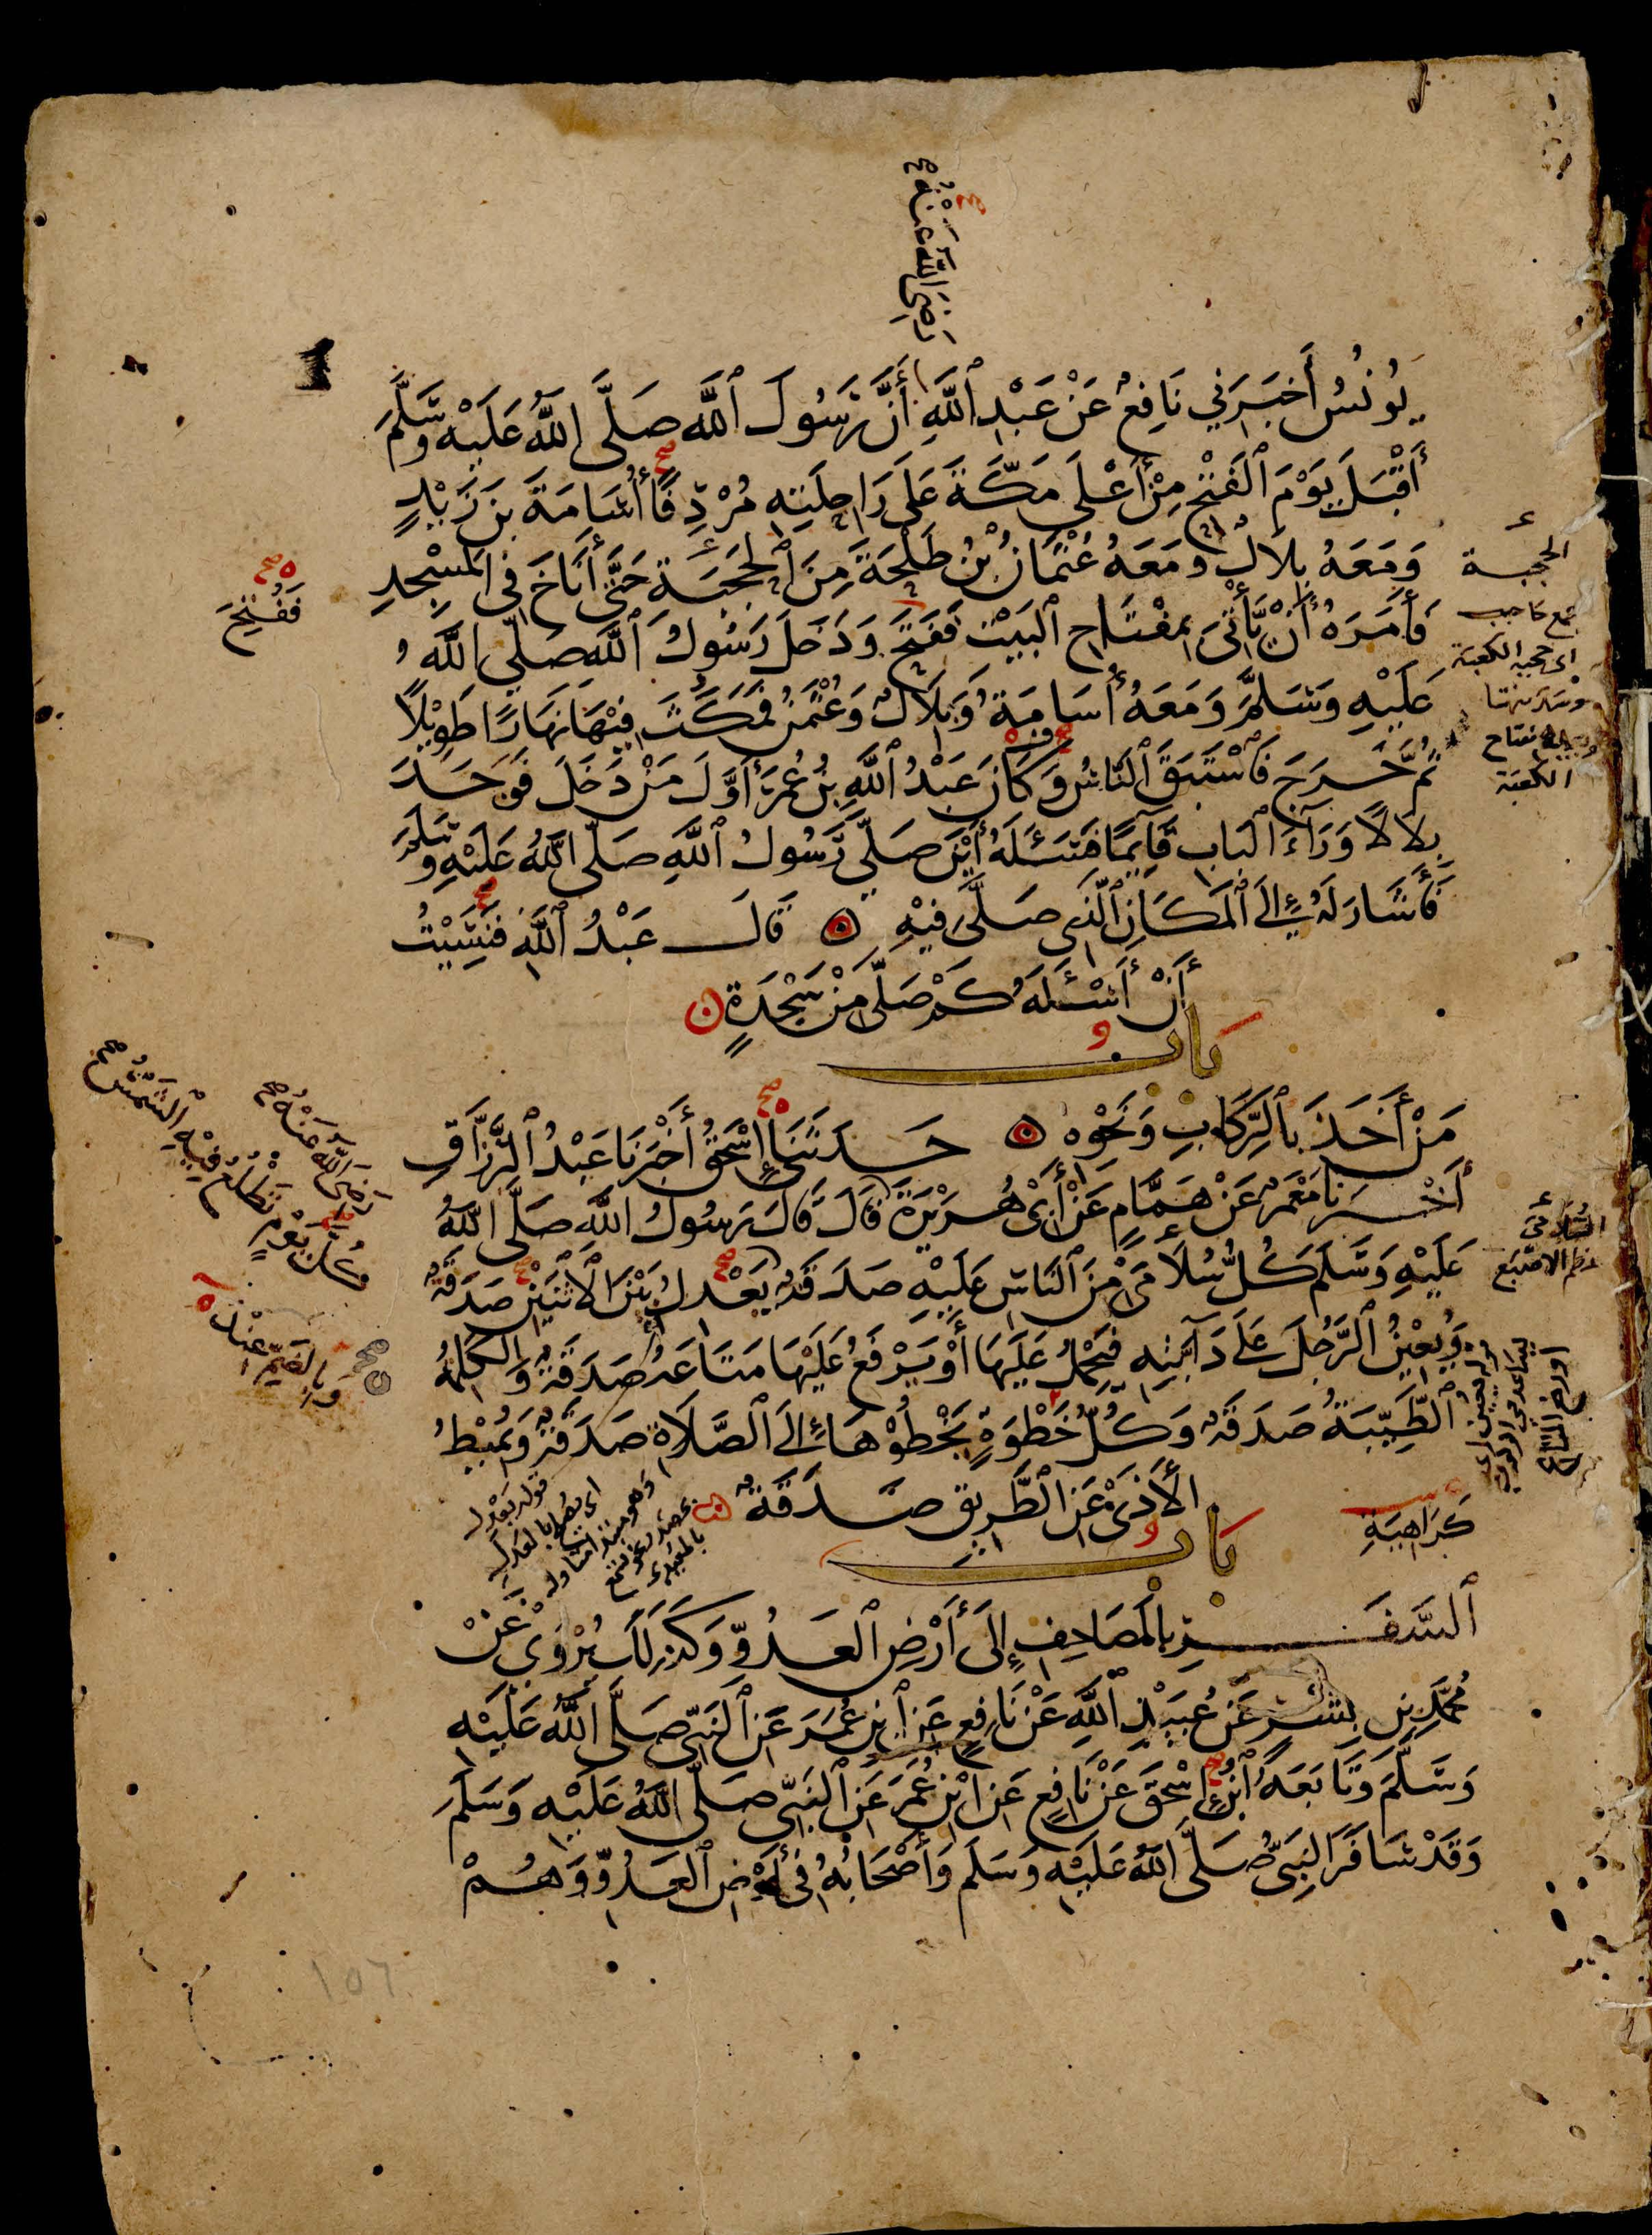 رَضِيَ اللّٰهُ عَنْهُ
يُونُسُ أَخْبَرَنِي نَافِعٌ عَنْ عَبْدِ ٱللَّهِ أَنَّ رَسُولَ ٱللَّهِ صَلَّى اللَّهُ عَلَيْهِ وَسَلَّمَ
أَقْبَلَ يَوْمَ ٱلْفَتْحِ مِنْ أَعْلَى مَكَّةَ عَلَى رَاحِلَتِهِ مُرْدِفًا أُسَامَةَ بْنَ زَيْدٍ
وَمَعَهُ بِلَالٌ وَمَعَهُ عُثْمَانُ بْنُ طَلْحَةَ مِنَ ٱلْحَجَبَةِ حَتَّى أَنَاخَ فِي الْمَسْجِدِ
فَأَمَرَهُ أَنْ يَّأْتِيَ بِمِفْتَاحِ ٱلْبَيْتِ فَفَتَحَ وَدَخَلَ رَسُولُ ٱللَّهِ صَلَّى اللَّهُ
عَلَيْهِ وَسَلَّمَ وَمَعَهُ أُسَامَةُ وَبِلَالٌ وَعُثْمٰنُ فَمَكَثَ فِيْهَا نَهَارًا طَوِيْلًا
ثُمَّ خَرَجَ فَٱسْتَبَقَ ٱلنَّاسُ وَكَانَ عَبْدُ ٱللَّهِ بْنُ عُمَرَ أَوَّلَ مَنْ دَخَلَ فَوَجَدَ
بِلَالًا وَرَآءَ ٱلْبَابِ قَآئِمًا فَسَئَلَهُ أَيْنَ صَلَّى رَسُولُ ٱللَّهِ صَلَّى اللَّهُ عَلَيْهِ وَسَلَّمَ
فَأَشَارَ لَهُ إِلَى ٱلْمَكَانِ ٱلَّذِي صَلَّى فِيْهِ ۝ قَالَ عَبْدُ ٱللَّهِ فَنَسِيْتُ
أَنْ أَسْئَلَهُ كَمْ صَلَّى مِنْ سَجْدَةٍ
بَابُ
مَنْ أَخَذَ بِٱلرِّكَابِ وَنَحْوِهِ ۝ حَدَّثَنِي إِسْحٰقُ أَخْبَرَنَا عَبْدُ ٱلرَّزَّاقِ
أَخْبَرَنَا مَعْمَرٌ عَنْ هَمَّامٍ عَنْ أَبِيْ هُرَيْرَةَ قَالَ قَالَ رَسُولُ اللَّهِ صَلَّى اللَّهُ
عَلَيْهِ وَسَلَّمَ كُلُّ سُلَامَى مِنَ ٱلنَّاسِ عَلَيْهِ صَدَقَةٌ يَعْدِلُ بَيْنَ ٱلْاثْنَيْنِ صَدَقَةٌ
وَيُعِيْنُ ٱلرَّجُلَ عَلَى دَآبَّتِهِ فَيَحْمِلُ عَلَيْهَا أَوْ يَرْفَعُ عَلَيْهَا مَتَاعَهُ صَدَقَةٌ وَالْكَلِمَةُ
ٱلطَّيِّبَةُ صَدَقَةٌ وَكُلُّ خَطْوَةٍ يَخْطُوْهَا إِلَى ٱلصَّلَاةِ صَدَقَةٌ وَيُمِيْطُ
الْأَذَىٰ عَنِ ٱلطَّرِيْقِ صَدَقَةٌ
بَابُ
كَرَاهِيَةِ
ٱلسَّفَرِ بِالْمَصَاحِفِ إِلَى أَرْضِ ٱلْعَدُوِّ وَكَذٰلِكَ يُرْوٰى عَنْ
مُحَمَّدِ بْنِ بِشْرٍ عَنْ عُبَيْدِ ٱللَّهِ عَنْ نَافِعٍ عَنِ ٱبْنِ عُمَرَ عَنِ ٱلنَّبِيِّ صَلَّى اللَّهُ عَلَيْهِ
وَسَلَّمَ وَتَابَعَهُ ٱبْنُ إِسْحٰقَ عَنْ نَافِعٍ عَنِ ابْنِ عُمَرَ عَنِ ٱلنَّبِيِّ صَلَّى اللَّهُ عَلَيْهِ وَسَلَّمَ
وَقَدْ سَافَرَ النَّبِيُّ صَلَّى اللَّهُ عَلَيْهِ وَسَلَّمَ وَأَصْحَابُهُ فِي أَرْضِ ٱلْعَدُوِّ وَهُمْ
فَفُتِحَ
الحجبة
جمع حاجب
اى حجبة الكعبة
مفتاح
الكعبة
رَضِيَ اللّٰهُ عَنْهُ
كُلَّ يَوْمٍ تَطْلُعُ فِيْهِ ٱلشَّمْسُ
السُّلَامَى
عظم الاصبع
قوله يعدل
اى يصلح بالعدل
وهو مبتدا
١٥٦